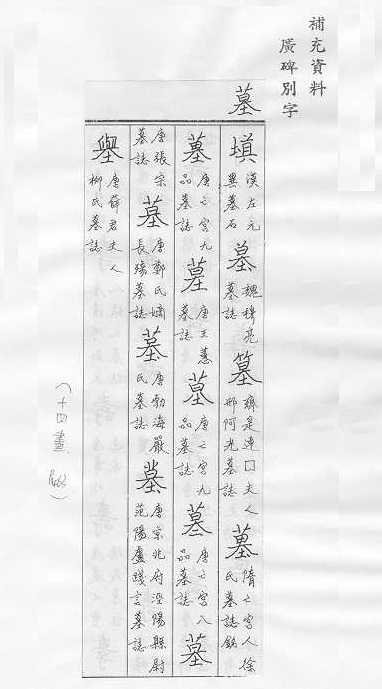 補充資料
廣碑別字
墓
塡 漢左元異墓石 墓 魏穆亮墓誌 墓 殊是連口夫人邢阿光墓誌 墓 隋亡宮人徐氏墓誌銘
墓 唐亡宮九品墓誌 墓 唐王慧墓誌 墓 唐亡宮九品墓誌 墓 唐亡宮八品墓誌 墓
唐張宗墓誌 墓 唐鄭氏嫡長殤墓誌 墓 唐勃海嚴氏墓誌 墓 唐京兆府涇陽縣尉范陽盧踐言墓誌
唐薛君夫人柳氏墓誌
(十四畫